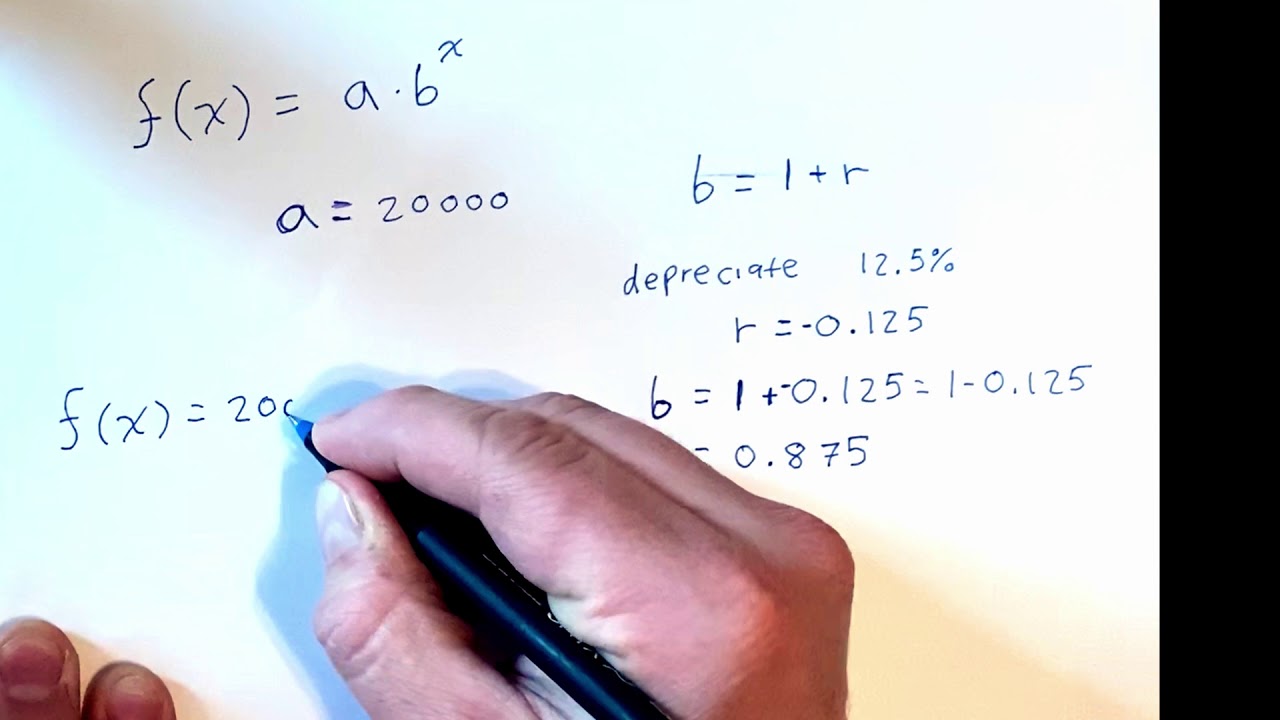 f(x) = a · b^x
a = 20000
b = 1 + r
depreciate 12.5%
r = -0.125
b = 1 + -0.125 = 1 - 0.125
= 0.875
f(x) = 200